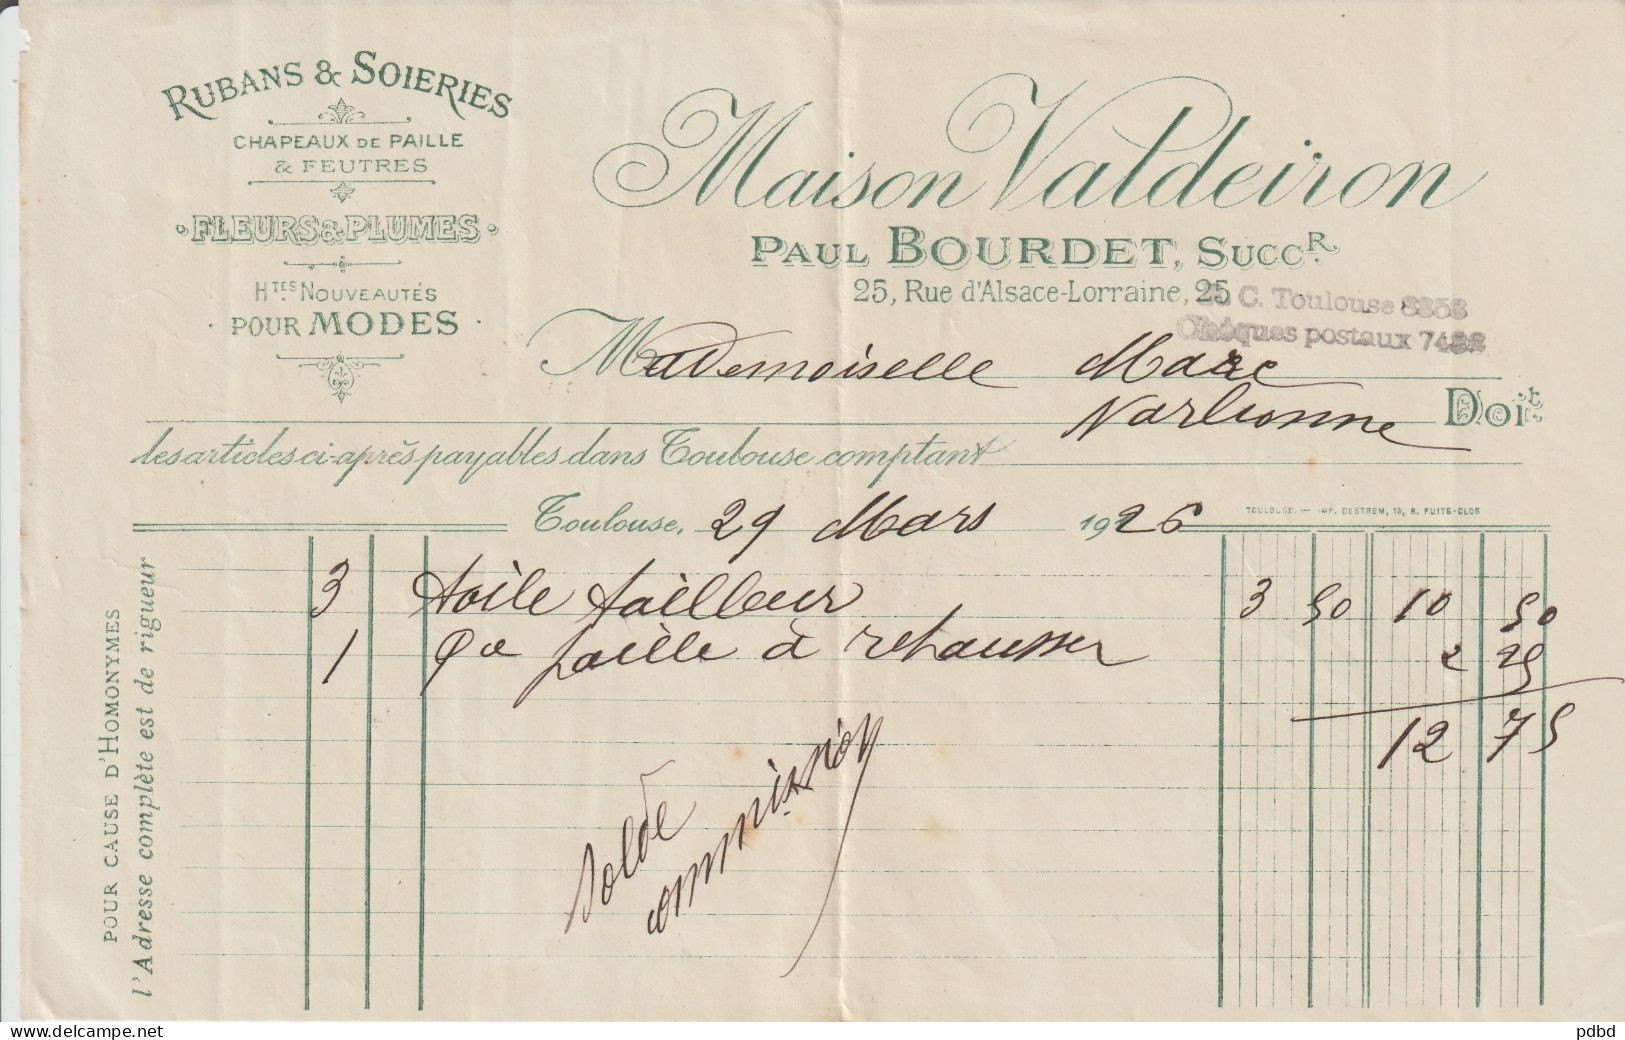 RUBANS & SOIERIES
CHAPEAUX DE PAILLE
& FEUTRES
FLEURS & PLUMES
HTES NOUVEAUTÉS
POUR MODES
Maison Valdeiron
PAUL BOURDET, SUCCR.
25, Rue d'Alsace-Lorraine, 25
C. Toulouse 8358
Chèques postaux 7482
Mademoiselle Marc
Narbonne Doit
les articles ci-après payables dans Toulouse comptant
Toulouse, 29 Mars 1926
TOULOUSE. — IMP. DESTREM, 18, R. PUITS-CLOS
3 toile tailleur 3 50 10 50
1 paille à rehausser 2 25
12 75
solde
commission
POUR CAUSE D'HOMONYMES
l'Adresse complète est de rigueur
www.delcampe.net
pdbd